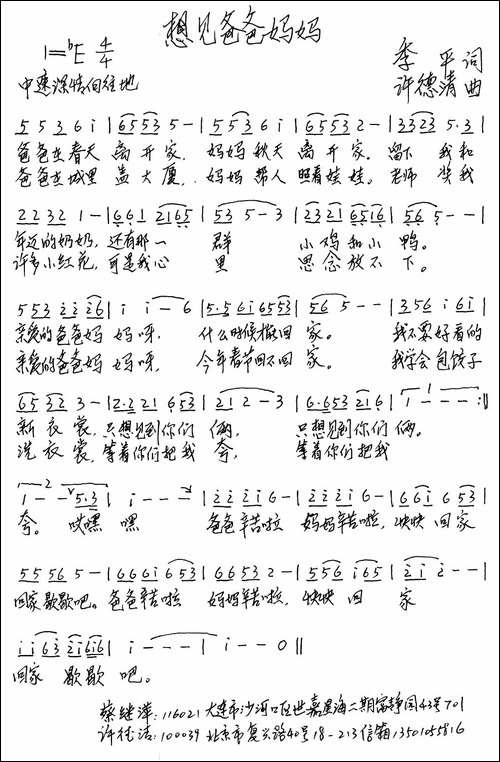 想见爸爸妈妈
1=♭E 4/4
季 平 词
中速深情向往地
许德清 曲
5 5 3 6 i | 6553 5 - | 5 5 3 6 i | 6553 2 - | 3323 5·3 |
爸爸去春天 离开家, 妈妈秋天 离开家。留下 我和
爸爸去城里 盖大厦, 妈妈帮人 照看娃娃。老师 奖我
2 2 3 2 1 - | 6 6 1 2165 | 53 5 - 3 | 2321 6516 | 56 5 - - |
年迈的奶奶, 还有那一 群 小鸡和小 鸭。
许多小红花, 可是我心 里 思念放不 下。
5 5 3 2 2 26 | i i - 6 | 5·56i 6553 | 56 5 - - | 3 56 i 6i |
亲爱的爸爸妈 妈呀, 什么时候撤回 家。 我不要好看的
亲爱的爸爸妈 妈呀, 今年春节回不回 家。 我学会包饺子
65 32 3 - | 2·2 21 6 53 | 21 2 - 3 | 6·653 216 | 1 - - - :||
新衣裳, 只想见到你们 俩, 只想见到你们 俩。
洗衣裳, 等着你们把我 夸, 等着你们把我
1 - 2 - 5·3 | i - - - | 2 2 2 i 6 - | 2 2 2 i 6 - | 6 6 i 6 53 |
夸。 哎嘿 嘿 爸爸辛苦啦 妈妈辛苦啦, 快快 回家
5 5 56 5 - | 6 6 6 i 6 53 | 6 6 53 2 - | 5 56 i65 | 2 i 2 - - |
回家歇歇吧。爸爸辛苦啦 妈妈辛苦啦, 快快 回 家
i i 63 2 i6i6 | i - - - | i - - 0 ||
回家 歇歇 吧。
蔡继萍: 116021 大连市沙河口区世嘉星海二期富静园43号701
许德清: 100039 北京市复兴路40号18-213信箱 13501055816